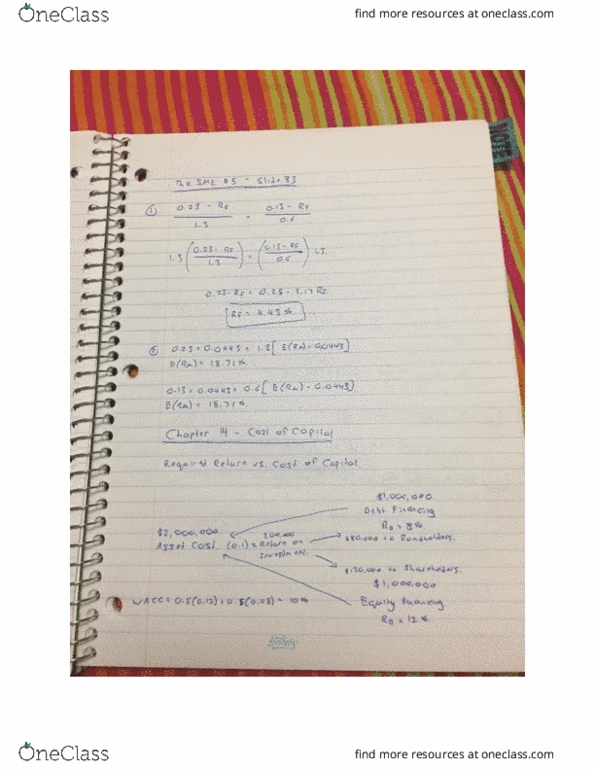 OneClass
find more resources at oneclass.com
The SML #5 - Slide 33
① 0.23 - RF / 1.3 = 0.13 - RF / 0.6
1.3 ( 0.23 - RF / 1.3 ) = ( 0.13 - RF / 0.6 ) 1.3
0.23 - RF = 0.28 - 2.17 RF
RF = 4.43%
② 0.23 = 0.0443 + 1.3 [ E(RM) - 0.0443 ]
E(RM) = 18.71%
0.13 = 0.0443 + 0.6 [ E(RM) - 0.0443 ]
E(RM) = 18.71%
Chapter 14 - Cost of Capital
Required Return vs. Cost of Capital
$1,000,000
Debt Financing
RD = 8%
$2,000,000
Asset Cost (0.1) = 200,000 Return on Investment
$80,000 to Bondholders.
$120,000 to Shareholders.
$1,000,000
Equity Financing
WACC = 0.5(0.12) + 0.5(0.08) = 10%
= 12%
Hilroy
OneClass
find more resources at oneclass.com